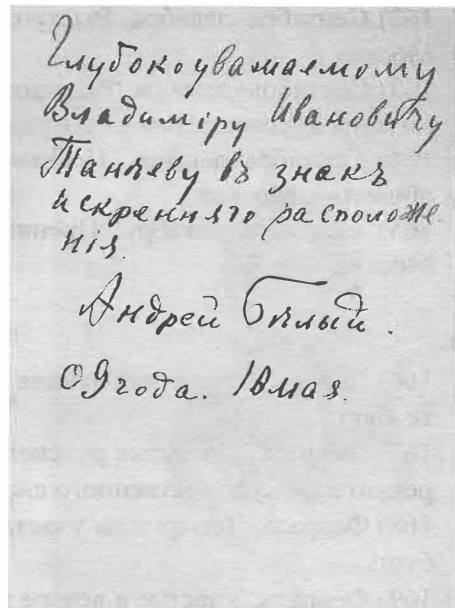 Глубокоуважаемому
Владиміру Ивановичу
Танѣеву въ знакъ
искренняго расположе-
нія.
Андрей Бѣлый.
09 года. 10 мая.